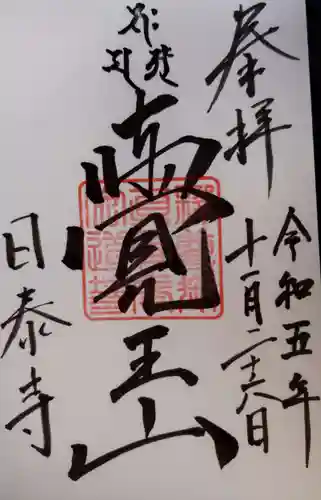 奉拝
令和五年
十一月二十六日
覺王山
日泰寺